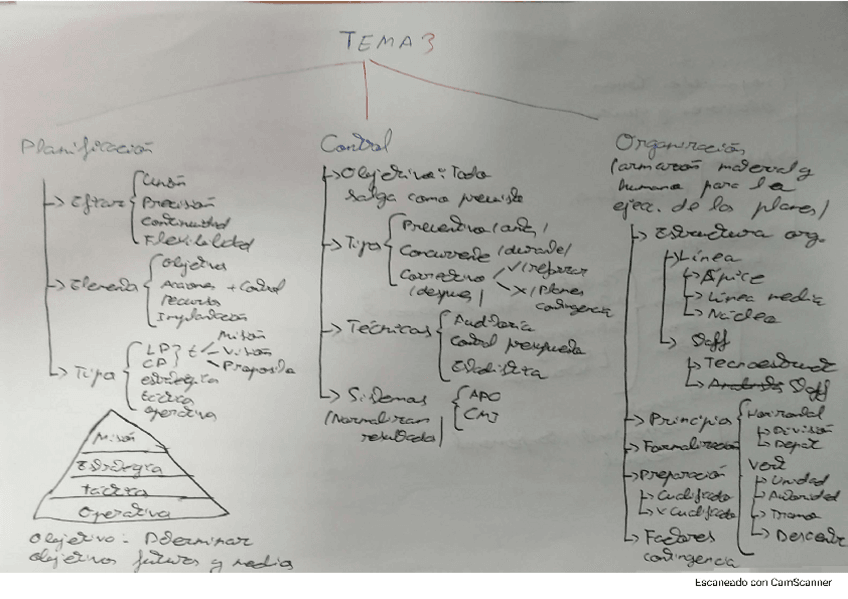 TEMA 3
Planificación
Efrar
Unión
Precisión
Continuidad
Flexibilidad
Elementos
Objetivos
Acciones + Control
recursos
Implantación
Tipos
LP
CP
t
Misión
Visión
Propósito
estrategia
táctica
operativa
Misión
Estrategia
táctica
Operativa
Objetivo: Determinar
objetivos futuros y medios
Control
Objetivo: Todo
salga como previsto
Tipos
Preventivo (antes)
Concurrente (durante)
Correctivo
(después)
✓ (reforzar
X (Planes
contingencia
Técnicas
Auditoría
Control presupuesto
Estadística
Sistemas
(Normalizan
resultados)
APO
CMI
Organización
(armazón material y
humano para la
ejec. de los planes)
Estructura org.
Línea
Ápice
Línea media
Núcleo
Staff
Tecnoestruct
Staff
Principios
Horizontal
División
Depat
Vert
Unidad
Autoridad
Tramo
Descentr
Formalización
Preparación
Cualificado
X Cualificado
Factores
contingencia
Escaneado con CamScanner